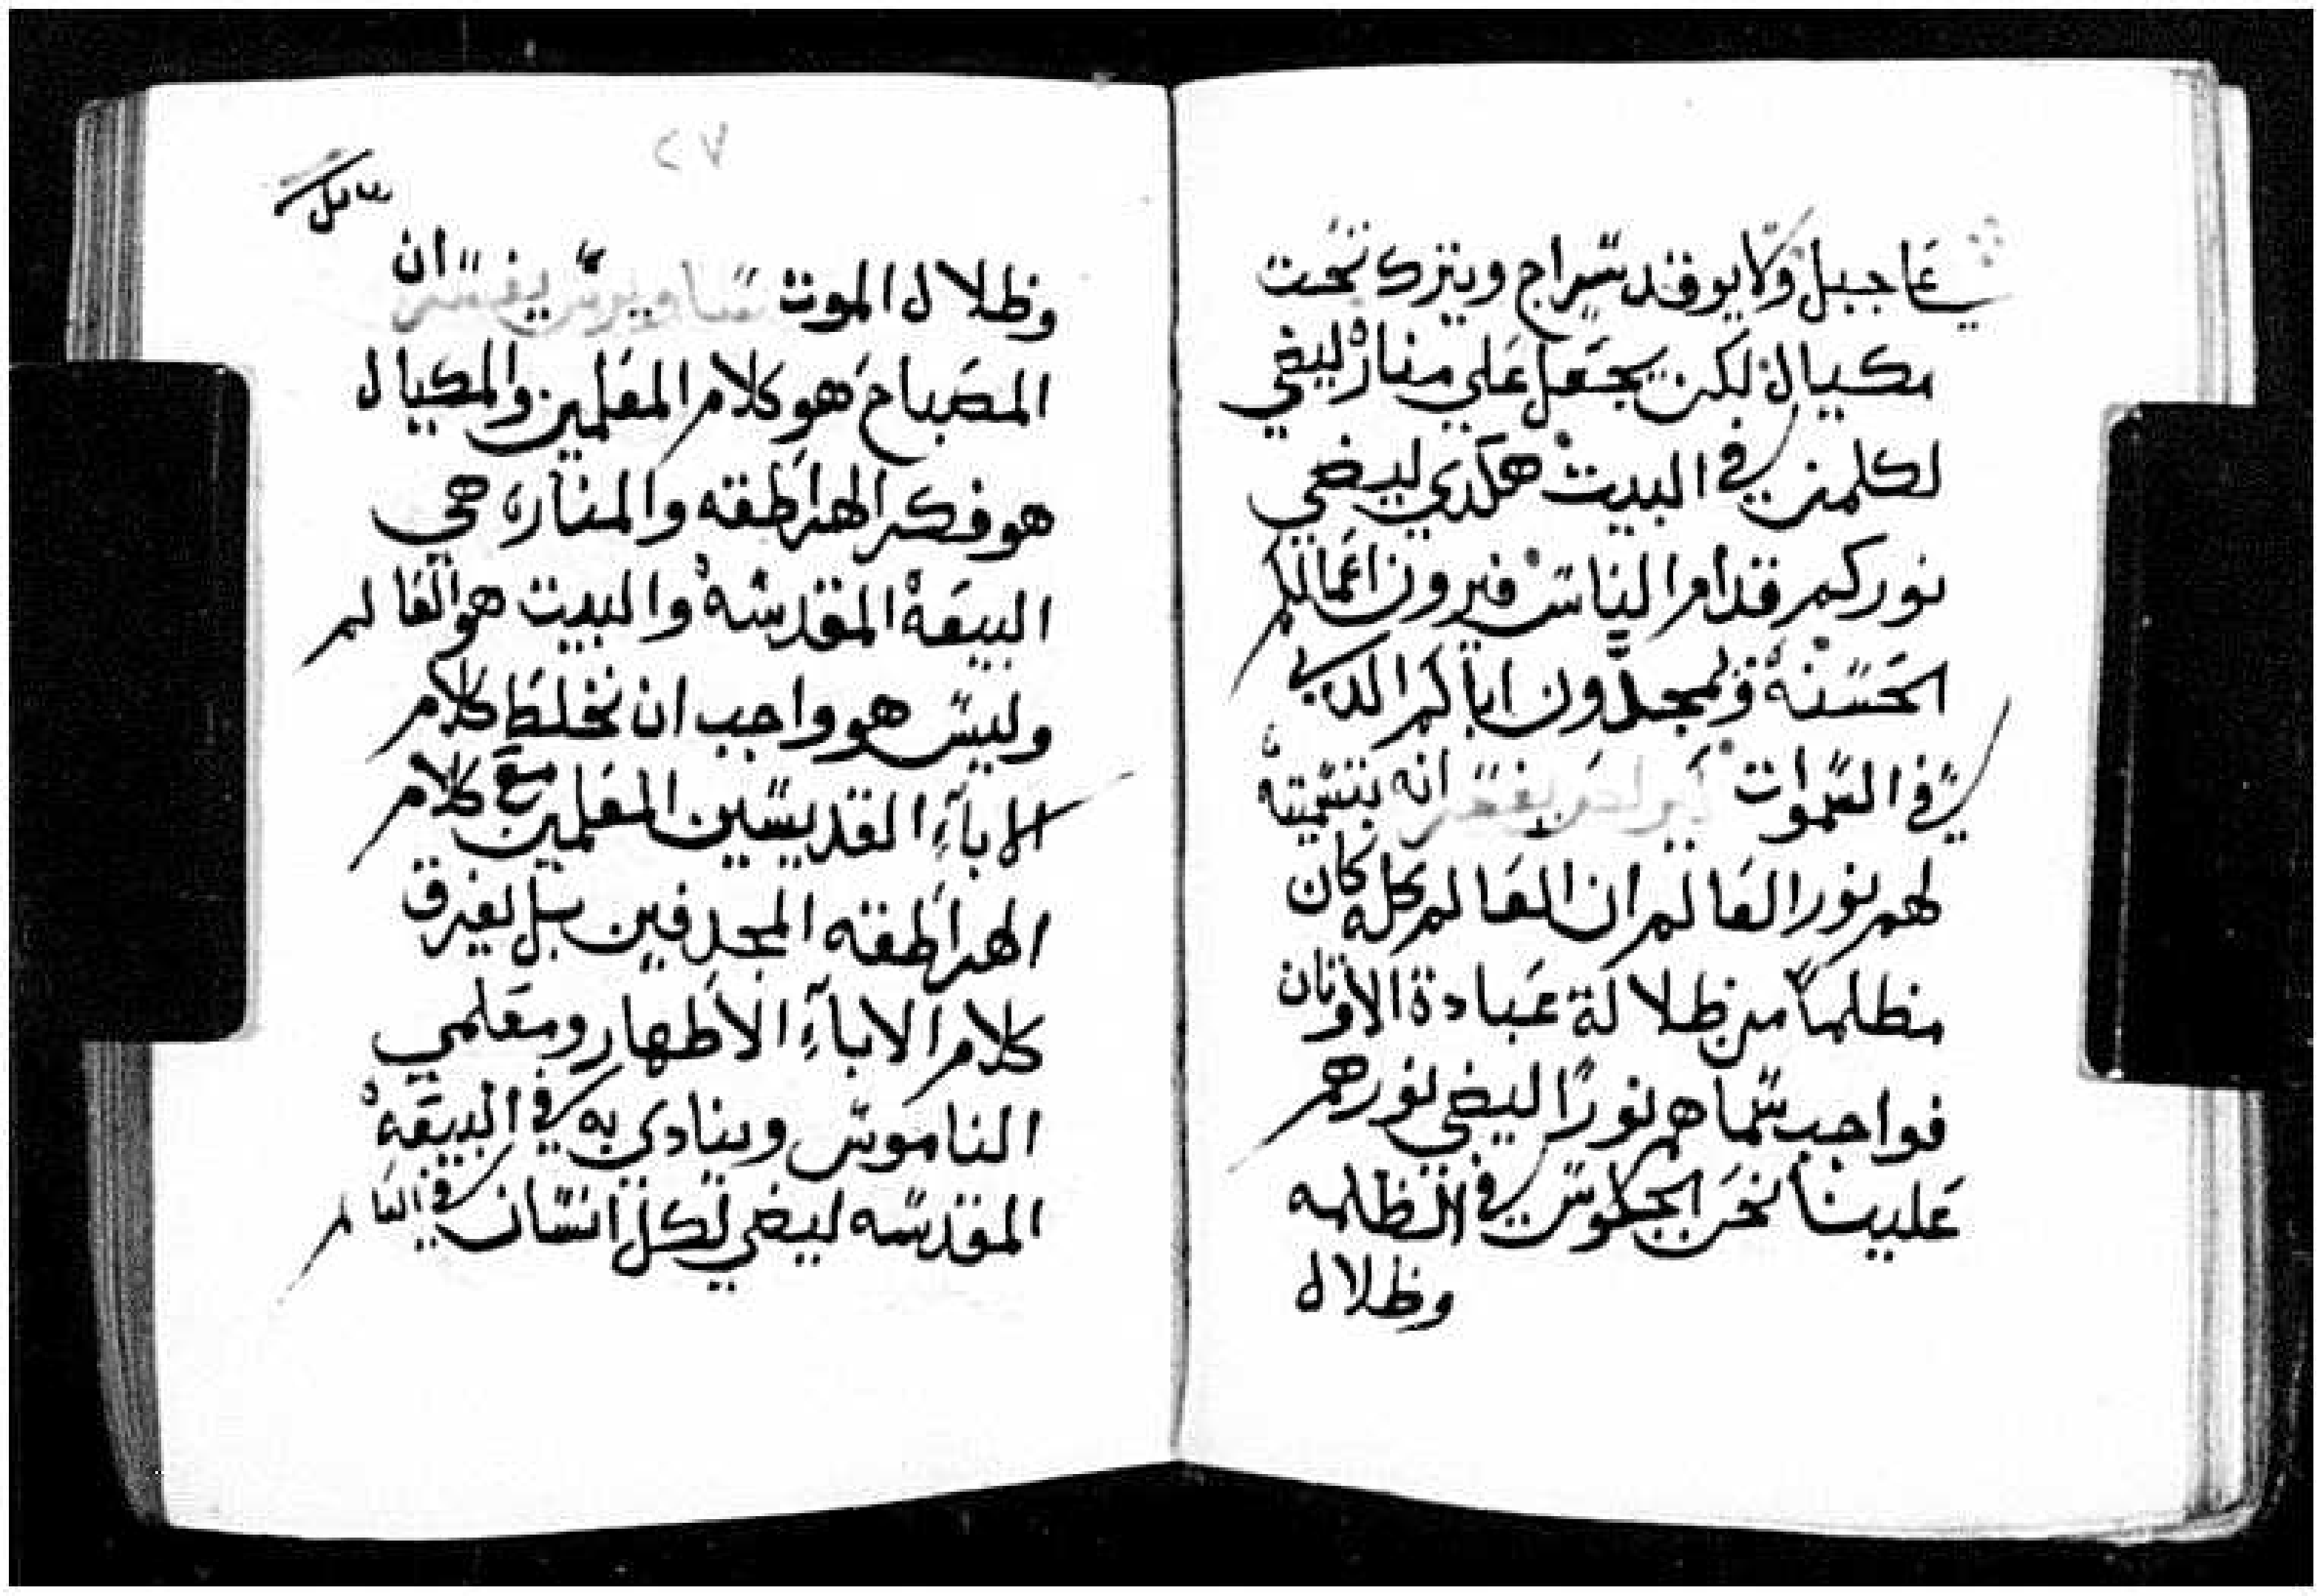 عا جبل ولا يوقد سراج ويترك تحت
مكيال لكن يجعل علي منار ليضي
لكلمن في البيت هكذي ليضي
نوركم قدام الناس فيرون اعمالكم
الحسنة ويمجدون اباكم الذي
في السموات كيرلص يفسر انه بتسميته
لهم نور العالم ان العالم كله كان
مظلماً من ظلالة عبادة الاوثان
فواجب سماهم نوراً ليضي نورهم
علينا نحن الجلوس في الظلمه
وظلال
٢٧
وظلال الموت ساويرس يفسر ان
المصباح هو كلام المعلمين والمكيال
هو فكر الهراطقه والمناره هي
البيعة المقدسة والبيت هو العالم
وليس هو واجب ان نخلط كلام
الابآء القديسين المعلمين مع كلام
الهراطقه المجدفين بل يفرق
كلام الابآء الاطهار ومعلمي
الناموس وينادي به في البيعة
المقدسه ليضي لكل انسان في العالم